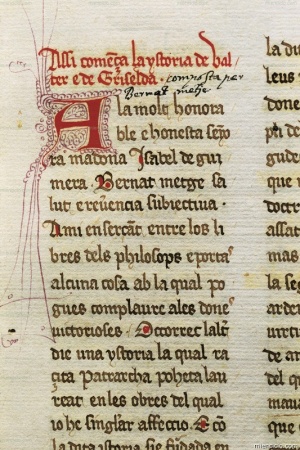 Assi comença la ystoria de val
ter e de Griselda. composta per
Bernat metge
A la molt honora
ble e honesta seño
ra madona Isabel de gui
mera. Bernat metge sa
lut e reuerẽcia subiectiua.
Ami ensercãt entre los li
bres dels philosofs e poeta
alcuna cosa ab la qual po
gues complaure a les dones
uirtuoses. Ocorrech lalt̃
die una ystoria la qual ra
cita Patrarcha poheta lau
reat en les obres del qual
yo he singlar affeccio. E cõ
la dita istoria sie fũdada en
la du
leus
done
ph de
gud
en o
doctr
assat
mas
la se
arde
de ar
en
maua
que